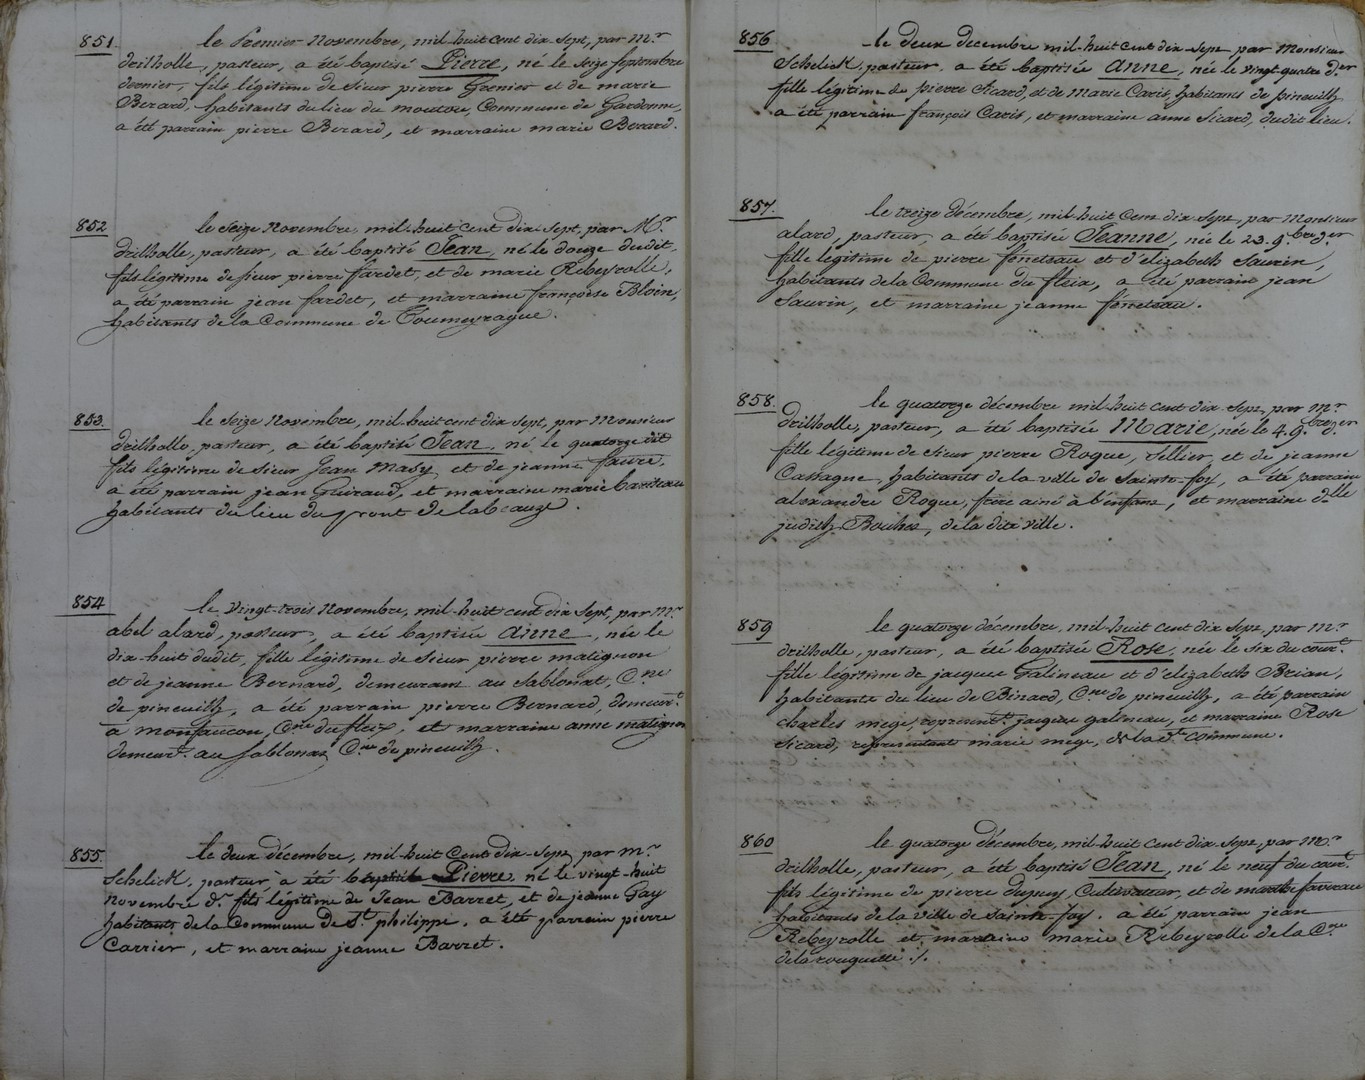 851. le Premier Novembre, mil-huit cent dix-sept, par mr.
drilholle, pasteur, a été baptisé Pierre, né le seize septembre
dernier, fils légitime de sieur pierre Grenier et de marie
Berard, habitants du lieu du moutou, Commune de Gardonne,
a été parrain pierre Berard, et marraine marie Berard.
852 le seize Novembre, mil-huit cent dix sept, par Mr.
drilholle, pasteur, a été baptisé Jean, né le douze dudit,
fils légitime de sieur pierre fardet, et de marie Rebeyrolle,
a été parrain jean fardet, et marraine françoise Bloin,
habitants de la Commune de Toumeyrague.
853. le seize Novembre, mil-huit cent dix sept, par Monsieur
drilholle, pasteur, a été baptisé Jean, né le quatorze dit
fils légitime de sieur Jean Masy et de jeanne faure,
a été parrain jean Guiraud, et marraine marie bariteau
habitants du lieu du pront de labeauze.
854 le vingt-trois Novembre, mil-huit cent dix sept, par mr.
abel alard, pasteur, a été baptisée anne, née le
dix huit dudit, fille légitime de sieur pierre matignon
et de jeanne Bernard, demeurans au Sablonat, Cne
de pineuilh, a été parrain pierre Bernard, demeurt.
a monfaucon, Cne du fleix, et marraine anne matignon
demeurt. au Sablonat Cne de pineuilh.
855. le deux décembre, mil-huit Cent dix-sept, par mr.
Schelick, pasteur a été baptisé Pierre né le vingt-huit
novembre dr. fils légitime de Jean Barret, et de jeanne Gay
habitants de la Commune de St. philippe, a été parrain pierre
Carrier, et marraine jeanne Barret.
856 le deux decembre mil-huit cent dix-sept par Monsieur
Schelick, pasteur, a été baptisée anne, née le vingt-quatre der
fille légitime de pierre Sicard, et de Marie Caris, habitants de pineuilh
a été parrain françois Caris, et marraine anne Sicard, dudit lieu.
857. le treize décembre, mil-huit cent dix sept, par Monsieur
alard, pasteur, a été baptisée Jeanne, née le 23. 9.bre der.
fille légitime de pierre féneteau et d'elizabeth Saurin,
habitants de la Commune du fleix, a été parrain jean
Saurin, et marraine jeanne féneteau.
858. le quatorze décembre mil-huit cent dix-sept, par mr.
drilholle, pasteur, a été baptisée Marie, née le 4. 9.bre der
fille légitime de sieur pierre Roque, sellier, et de jeanne
Cassagne, habitants de la ville de Sainte-foy, a été parrain
alexandre Roque, frère ainé à l'enfant, et marraine dlle
judith Bouhes, de la dite ville.
859 le quatorze décembre, mil-huit cent dix sept, par mr.
drilholle, pasteur, a été baptisée Rose, née le six du court.
fille légitime de jacques Galineau et d'elizabeth Brian,
habitants du lieu de Binard, Cne de pineuilh, a été parrain
charles mège, représent. jacques galineau, et marraine Rose
Sicard, représentant marie mege, de la dte commune.
860 le quatorze décembre, mil-huit cent dix-sept, par Mr.
drilholle, pasteur, a été baptisé Jean, né le neuf du court
fils légitime de pierre dupuy, Cultivateur, et de marthe favereau
habitants de la ville de Sainte-foy. a été parrain jean
Rebeyrolle et marraine marie Rebeyrolle de la Cne
de la rouquette ./.